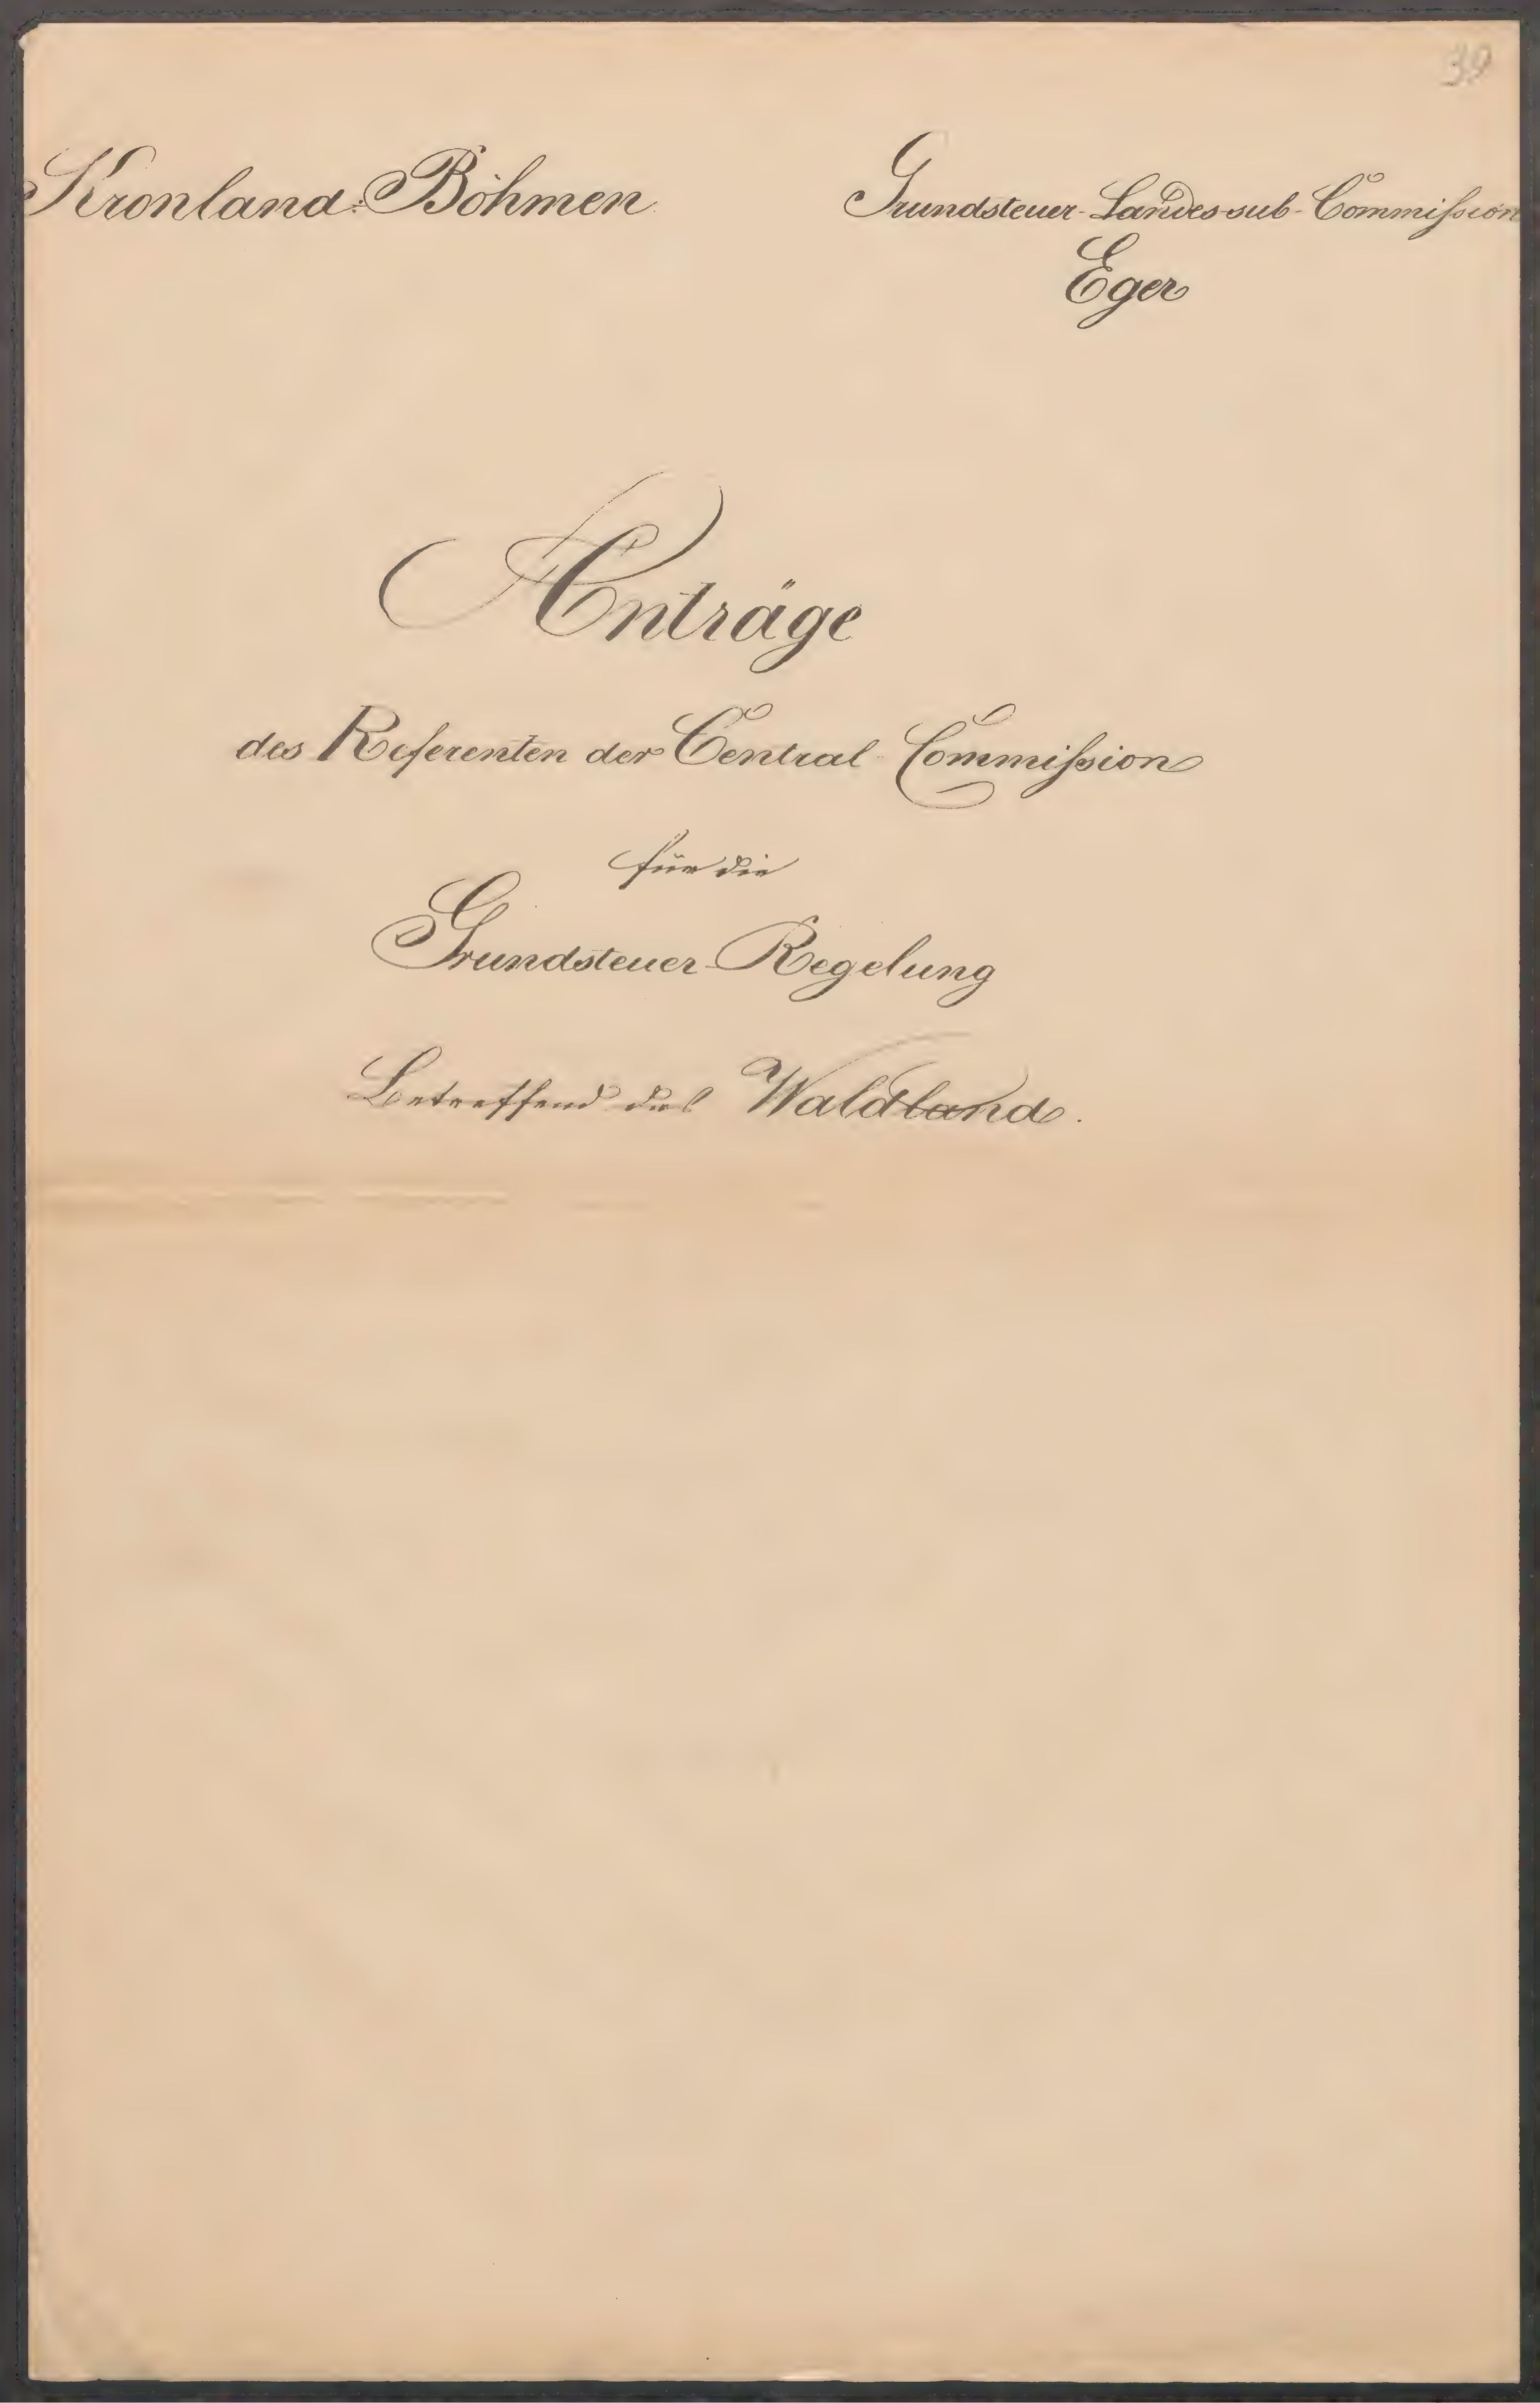 39
Kronland: Böhmen
Grundsteuer-Landes-sub-Commission
Eger
Anträge
des Referenten der Central-Commission
für die
Grundsteuer-Regelung
Betreffend das Waldland.